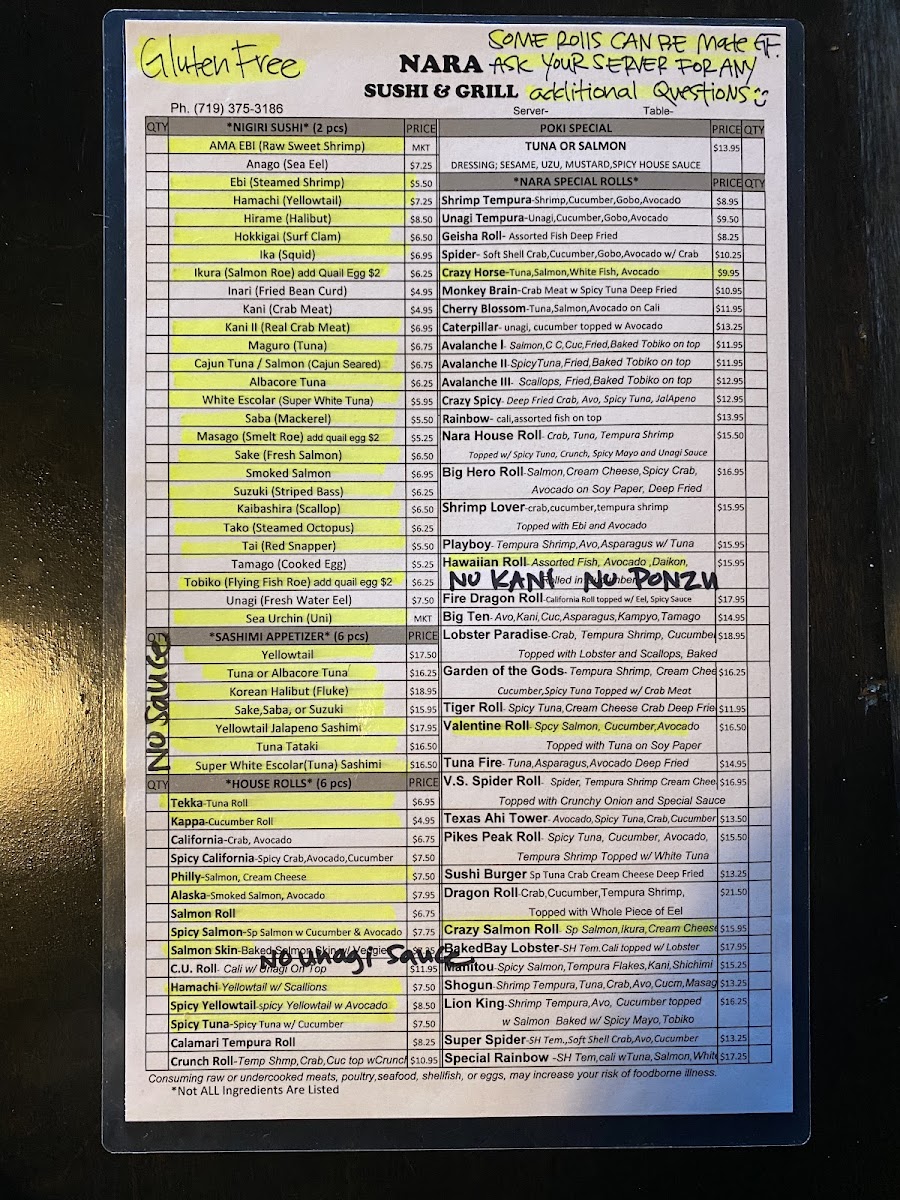 Gluten Free
SOME ROLLS CAN BE Made GF.
ASK YOUR SERVER FOR ANY
additional Questions
NARA
SUSHI & GRILL
Ph. (719) 375-3186
Server- Table-
QTY *NIGIRI SUSHI* (2 pcs) PRICE
AMA EBI (Raw Sweet Shrimp) MKT
Anago (Sea Eel) $7.25
Ebi (Steamed Shrimp) $5.50
Hamachi (Yellowtail) $7.25
Hirame (Halibut) $8.50
Hokkigai (Surf Clam) $6.50
Ika (Squid) $6.95
Ikura (Salmon Roe) add Quail Egg $2 $6.25
Inari (Fried Bean Curd) $4.95
Kani (Crab Meat) $4.95
Kani II (Real Crab Meat) $6.95
Maguro (Tuna) $6.75
Cajun Tuna / Salmon (Cajun Seared) $6.75
Albacore Tuna $6.25
White Escolar (Super White Tuna) $5.95
Saba (Mackerel) $5.50
Masago (Smelt Roe) add quail egg $2 $5.25
Sake (Fresh Salmon) $6.50
Smoked Salmon $6.95
Suzuki (Striped Bass) $6.25
Kaibashira (Scallop) $6.50
Tako (Steamed Octopus) $6.25
Tai (Red Snapper) $5.50
Tamago (Cooked Egg) $5.25
Tobiko (Flying Fish Roe) add quail egg $2 $6.25
Unagi (Fresh Water Eel) $7.50
Sea Urchin (Uni) MKT
QTY *SASHIMI APPETIZER* (6 pcs) PRICE
No Sauce
Yellowtail $17.50
Tuna or Albacore Tuna $16.25
Korean Halibut (Fluke) $18.95
Sake,Saba, or Suzuki $15.95
Yellowtail Jalapeno Sashimi $17.95
Tuna Tataki $16.50
Super White Escolar(Tuna) Sashimi $16.50
QTY *HOUSE ROLLS* (6 pcs) PRICE
Tekka-Tuna Roll $6.95
Kappa-Cucumber Roll $4.95
California-Crab, Avocado $6.75
Spicy California-Spicy Crab,Avocado,Cucumber $7.50
Philly-Salmon, Cream Cheese $7.50
Alaska-Smoked Salmon, Avocado $7.95
Salmon Roll $6.75
Spicy Salmon-Sp Salmon w Cucumber & Avocado $7.75
Salmon Skin-Baked Salmon Skin w/ Veggie
No unagi Sauce
C.U. Roll- Cali w/ Unagi On Top $11.95
Hamachi-Yellowtail w/ Scallions $7.50
Spicy Yellowtail-spicy Yellowtail w Avocado $8.50
Spicy Tuna-Spicy Tuna w/ Cucumber $7.50
Calamari Tempura Roll $8.25
Crunch Roll-Temp Shmp,Crab,Cuc top wCrunch $10.95
POKI SPECIAL PRICE QTY
TUNA OR SALMON $13.95
DRESSING; SESAME, UZU, MUSTARD,SPICY HOUSE SAUCE
*NARA SPECIAL ROLLS* PRICE QTY
Shrimp Tempura-Shrimp,Cucumber,Gobo,Avocado $8.95
Unagi Tempura-Unagi,Cucumber,Gobo,Avocado $9.50
Geisha Roll- Assorted Fish Deep Fried $8.25
Spider- Soft Shell Crab,Cucumber,Gobo,Avocado w/ Crab $10.25
Crazy Horse-Tuna,Salmon,White Fish, Avocado $9.95
Monkey Brain-Crab Meat w Spicy Tuna Deep Fried $10.95
Cherry Blossom-Tuna,Salmon,Avocado on Cali $11.95
Caterpillar- unagi, cucumber topped w Avocado $13.25
Avalanche I- Salmon,C C,Cuc,Fried,Baked Tobiko on top $11.95
Avalanche II-SpicyTuna,Fried,Baked Tobiko on top $11.95
Avalanche III- Scallops, Fried,Baked Tobiko on top $12.95
Crazy Spicy- Deep Fried Crab, Avo, Spicy Tuna, JalApeno $12.95
Rainbow- cali,assorted fish on top $13.95
Nara House Roll- Crab, Tuna, Tempura Shrimp $15.50
Topped w/ Spicy Tuna, Crunch, Spicy Mayo and Unagi Sauce
Big Hero Roll-Salmon,Cream Cheese,Spicy Crab, $16.95
Avocado on Soy Paper, Deep Fried
Shrimp Lover-crab,cucumber,tempura shrimp $15.95
Topped with Ebi and Avocado
Playboy- Tempura Shrimp,Avo,Asparagus w/ Tuna $15.95
Hawaiian Roll- Assorted Fish, Avocado ,Daikon, $15.95
Rolled in Cucumber
NO KANI NO PONZU
Fire Dragon Roll-California Roll topped w/ Eel, Spicy Sauce $17.95
Big Ten- Avo,Kani,Cuc,Asparagus,Kampyo,Tamago $14.95
Lobster Paradise-Crab, Tempura Shrimp, Cucumbe $18.95
Topped with Lobster and Scallops, Baked
Garden of the Gods- Tempura Shrimp, Cream Chee $16.25
Cucumber,Spicy Tuna Topped w/ Crab Meat
Tiger Roll- Spicy Tuna,Cream Cheese Crab Deep Frie $11.95
Valentine Roll- Spcy Salmon, Cucumber,Avocado $16.50
Topped with Tuna on Soy Paper
Tuna Fire- Tuna,Asparagus,Avocado Deep Fried $14.95
V.S. Spider Roll- Spider, Tempura Shrimp Cream Chee $16.95
Topped with Crunchy Onion and Special Sauce
Texas Ahi Tower- Avocado,Spicy Tuna,Crab,Cucumber $13.50
Pikes Peak Roll- Spicy Tuna, Cucumber, Avocado, $15.50
Tempura Shrimp Topped w/ White Tuna
Sushi Burger Sp Tuna Crab Cream Cheese Deep Fried $13.25
Dragon Roll-Crab,Cucumber,Tempura Shrimp, $21.50
Topped with Whole Piece of Eel
Crazy Salmon Roll- Sp Salmon,Ikura,Cream Cheese $15.95
BakedBay Lobster-SH Tem.Cali topped w/ Lobster $17.95
Manitou-Spicy Salmon,Tempura Flakes,Kani,Shichimi $15.25
Shogun-Shrimp Tempura,Tuna,Crab,Avo,Cucm,Masag $13.25
Lion King-Shrimp Tempura,Avo, Cucumber topped $16.25
w Salmon Baked w/ Spicy Mayo, Tobiko
Super Spider-SH Tem.,Soft Shell Crab,Avo,Cucumber $13.25
Special Rainbow -SH Tem,cali wTuna,Salmon,White $17.25
Consuming raw or undercooked meats, poultry,seafood, shellfish, or eggs, may increase your risk of foodborne illness.
*Not ALL Ingredients Are Listed